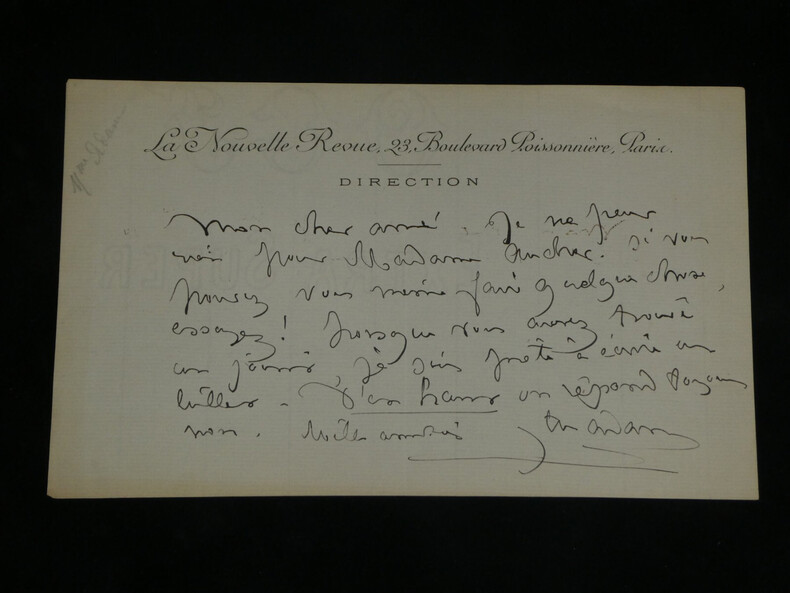 Mme Adam
La Nouvelle Revue, 23, Boulevard Poissonnière, Paris.
DIRECTION
Mon cher ami. Je ne peux
rien pour Madame. Si vous
pensez vous même faire quelque chose,
essayez! Lorsque vous aurez trouvé
un journal, je suis prête à écrire un
billet - D'en haut on répond toujours
non. Mille amitiés
Adam